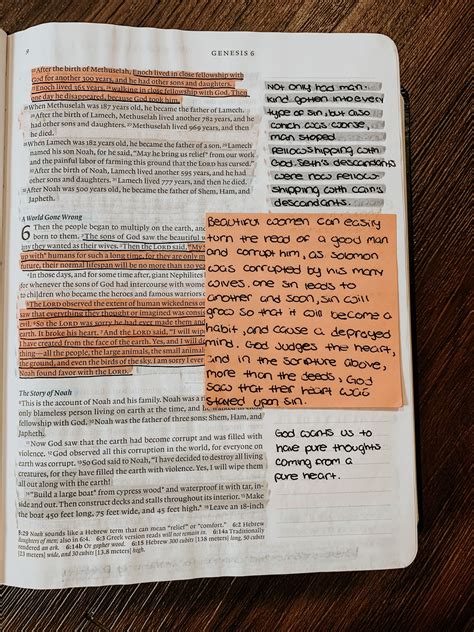 9
GENESIS 6
²²After the birth of Methuselah, Enoch lived in close fellowship with
God for another 300 years, and he had other sons and daughters.
²³Enoch lived 365 years, ²⁴walking in close fellowship with God. Then
one day he disappeared, because God took him.
²⁵When Methuselah was 187 years old, he became the father of Lamech.
²⁶After the birth of Lamech, Methuselah lived another 782 years, and he
had other sons and daughters. ²⁷Methuselah lived 969 years, and then
he died.
²⁸When Lamech was 182 years old, he became the father of a son. ²⁹Lamech
named his son Noah, for he said, "May he bring us relief from our work
and the painful labor of farming this ground that the LORD has cursed."
³⁰After the birth of Noah, Lamech lived another 595 years, and he had
other sons and daughters. ³¹Lamech lived 777 years, and then he died.
³²After Noah was 500 years old, he became the father of Shem, Ham, and
Japheth.
A World Gone Wrong
6 Then the people began to multiply on the earth, and
born to them. ²The sons of God saw the beautiful
any they wanted as their wives. ³Then the LORD said, "My
up with humans for such a long time, for they are only
future, their normal lifespan will be no more than 120
⁴In those days, and for some time after, giant Nephilites
for whenever the sons of God had intercourse with women
to children who became the heroes and famous warriors
⁵The LORD observed the extent of human wickedness
saw that everything they thought or imagined was
evil. ⁶So the LORD was sorry he had ever made them and
It broke his heart. ⁷And the LORD said, "I will wipe
I have created from the face of the earth. Yes, and I will
thing—all the people, the large animals, the small animals
the ground, and even the birds of the sky. I am sorry I ever
Noah found favor with the LORD.
The Story of Noah
⁹This is the account of Noah and his family. Noah was a
only blameless person living on earth at the time, and he
fellowship with God. ¹⁰Noah was the father of three sons: Shem, Ham, and
Japheth.
¹¹Now God saw that the earth had become corrupt and was filled with
violence. ¹²God observed all this corruption in the world, for everyone on
earth was corrupt. ¹³So God said to Noah, "I have decided to destroy all living
creatures, for they have filled the earth with violence. Yes, I will wipe them
all out along with the earth!
¹⁴"Build a large boat* from cypress wood* and waterproof it with tar, in-
side and out. Then construct decks and stalls throughout its interior. ¹⁵Make
the boat 450 feet long, 75 feet wide, and 45 feet high.* ¹⁶Leave an 18-inch
5:29 Noah sounds like a Hebrew term that can mean "relief" or "comfort." 6:2 Hebrew
daughters of men; also in 6:4. 6:3 Greek version reads will not remain in. 6:14a Traditionally
rendered an ark. 6:14b Or gopher wood. 6:15 Hebrew 300 cubits [138 meters] long, 50 cubits
[23 meters] wide, and 30 cubits [13.8 meters] high.
Not only had man-
kind gotten into every
type of sin, but also
which was worse, man stoped
fellowshipping with
God. Seth's descendants
were now fellow-
shipping with Cains
descendants.
Beautiful women can easily
turn the head of a good man
and corrupt him, as Solomon
was corrupted by his many
wives. One sin leads to
another and soon, sin will
grow so that it will become a
habit, and cause a depraved
mind. God judges the heart,
and in the scripture above,
more than the deeds, God
saw that their heart was
stayed upon sin.
God wants us to
have pure thoughts
coming from a
pure heart.